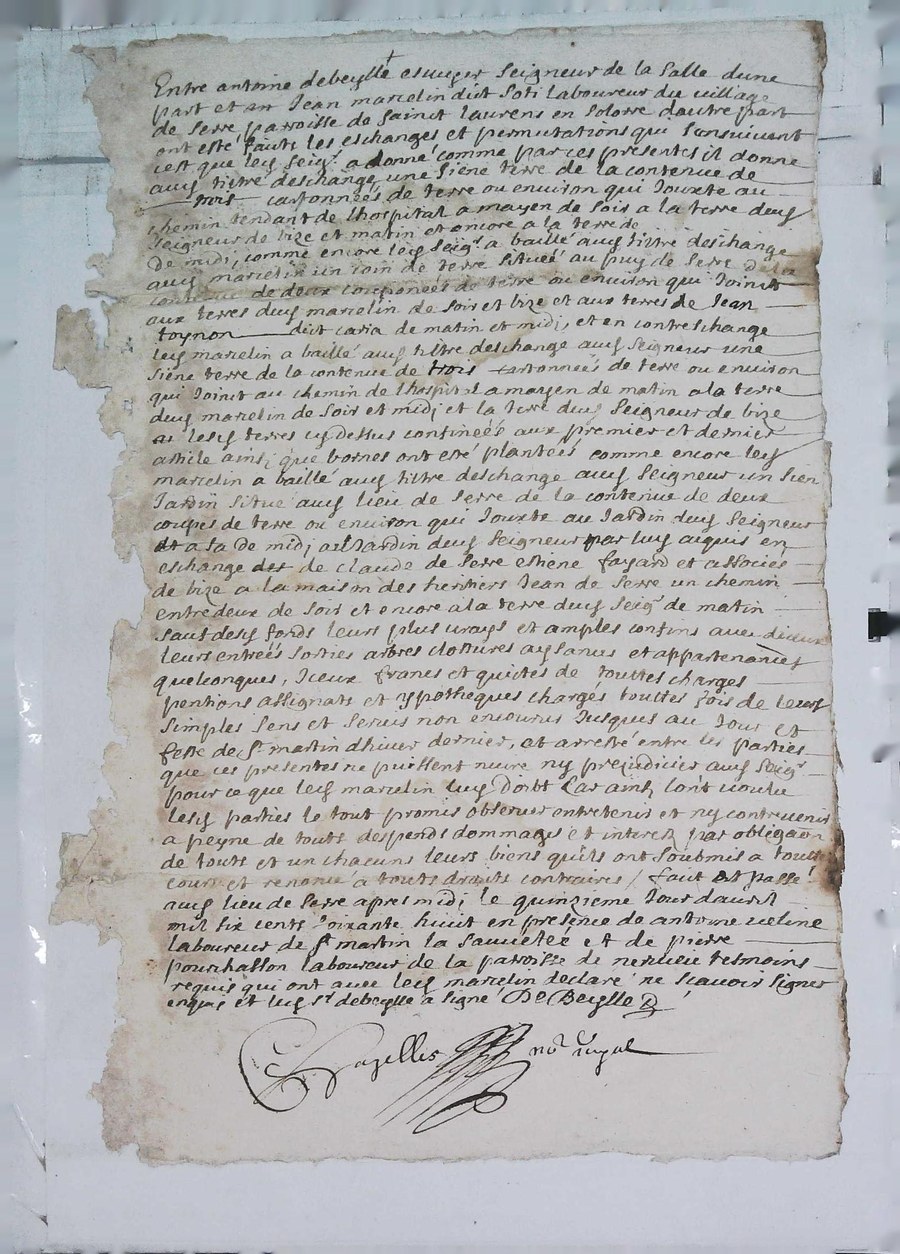 Entre antoine debeylle escuyer Seigneur de la Salle dune
part et Jean marcelin dict Soti Laboureur du village
de Serre parroisse de Sainct Laurens en Solorre dautre part
ont esté faicts les eschanges et permutations qui Sensuivent
cest que ledt Seigr a donné comme par ces presentes il donne
audt tiltre deschange une Siene terre de la contenue de
trois cartonnées de terre ou environ qui Jouxte au
chemin tendant de lhospital a mayen de Soir a la terre dudt
Seigneur de bize et matin et encore a la terre de
de midi, comme encore ledt Seigr a baillé audt tiltre deschange
audt marcelin un coin de terre Situéé au puy de Serre de la
contenue de deux couponées de terre ou environ qui Joinct
aux terres dudt marcelin de Soir et bize et aux terres de Jean
toynon dict caria de matin et midi, et en contreschange
ledt marcelin a baillé audt tiltre deschange audt Seigneur une
Siene terre de la contenue de trois cartonnées de terre ou environ
qui Joinct au chemin de lhospital a mayen de matin a la terre
dudt marcelin de Soir et midi et la terre dudt Seigneur de bize
lesdt terres cydessus confinéés aux premier et dernier
article ainsi que bornes ont esté plantées comme encore ledt
marcelin a baillé audt tiltre deschange audt Seigneur un Sien
Jardin Situé audt lieu de Serre de la contenue de deux
coupes de terre ou environ qui Jouxte au Jardin dudt Seigneur
de midi au Jardin dudt Seigneur par luy aquis en
eschange de claude de Serre estiene fayard et associés
de bize a la maison des heritiers Jean de Serre un chemin
entredeux de Soir et encore a la terre dudt Seigr de matin
Sauf desdt fonds leurs plus vrays et amples confins avec
leurs entréés Sorties arbres clostures aysances et appartenances
quelconques, Iceux francs et quictes de touttes charges
pentions assignats et ypotheques charges touttes fois de leurs
Simples Sens et Servis non encourus Jusques au Jour et
feste de St martin dhiver dernier, et arresté entre les parties
que ces presentes ne puissent nuire ny prejudicier audt Seigr
pour ce que ledt marcelin luy doibt Car ainsi lont voulu
lesdt parties le tout promis observer entretenir et ny contrevenir
a peyne de touts despends dommages et interests par obligaon
de touts et un chacuns leurs biens quils ont Soubmis a toutte
cours et renoncé a touts droits contraires / faict et passé
audt lieu de Serre apres midi le quinzieme Jour davril
mil six cents Soixante huict en presence de antoine veline
laboureur de St martin la Sauveté et de pierre
pourchasson laboureur de la parroisse de nervieu tesmoins
requis qui ont avec ledt marcelin declaré ne Scavoir Signer
enquis et ledt Sr debeylle a Signé De Beylle
nore Royal